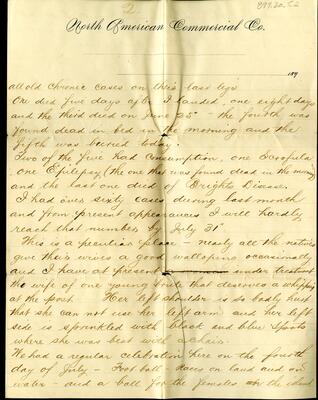 2
North American Commercial Co.
189
all old chronic cases on their last legs
One died five days after I landed, one eight days
and the third died on June 25th - the fourth was
found dead in bed in the morning and the
fifth was buried today.
Two of the five had Consumption, one Scrofula
one Epilepsy (The one that was found dead in the morning)
and the last one died of Brights Disease.
I had over sixty cases during last month
and from present appearances I will hardly
reach that number by July 31st
This is a peculiar place - nearly all the natives
give their wives a good walloping occasionally
and I have at present under treatment
the wife of one young that deserves a whipping
at the post. Her left shoulder is so badly hurt
that she can not use her left arm and her left
side is sprinkled with black and blue spots
where she was beat with a chair.
We had a regular celebration here on the fourth
day of July - Foot ball - Races on land and on
water - and a ball for the females on the island